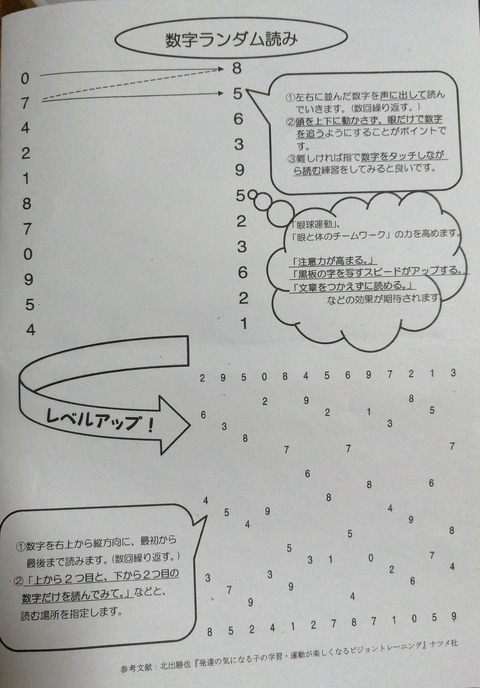 数字ランダム読み
0 8
7 5
4 6
2 3
1 9
8 5
7 2
0 3
9 6
5 2
4 1
①左右に並んだ数字を声に出して読ん
でいきます。(数回繰り返す。)
②頭を上下に動かさず、眼だけで数字
を追うようにすることがポイントで
す。
③難しければ指で数字をタッチしなが
ら読む練習をしてみると良いです。
「眼球運動」、
「眼と体のチームワーク」の力を高めます。
「注意力が高まる。」
「黒板の字を写すスピードがアップする。」
「文章をつかえずに読める。」
などの効果が期待されます
レベルアップ！
2 9 5 0 8 4 5 6 9 7 2 1 3
2 9 8
6 2 1 5
3 3
8
7 7 7
6 8 6
8
4 5 9 4
4 9
8
5 9
5 3 1 0 7
3 3 2 4
7 9 2 6
9 4
8 5 2 4 1 2 7 8 7 1 0 5 9
①数字を右上から縦方向に、最初から
最後まで読みます。(数回繰り返す。)
②「上から２つ目と、下から2つ目の
数字だけを読んでみて。」などと、
読む場所を指定します。
参考文献：北出勝也『発達の気になる子の学習・運動が楽しくなるビジョントレーニング』ナツメ社